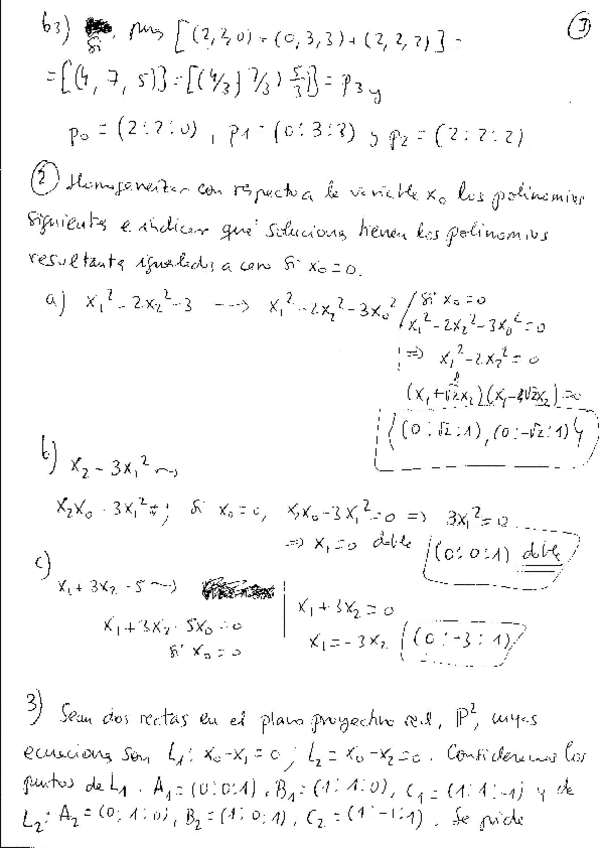 3
b3) Si, pues [(2,2,0) + (0,3,3) + (2,2,2)] =
= [(4, 7, 5)] = [(4/3, 7/3, 5/3)] = p3 y
p0 = (2:2:0), p1 = (0:3:3) y p2 = (2:2:2)
2 Homogeneizar con respecto a la variable x0 los polinomios
siguientes e indicar qué soluciones tienen los polinomios
resultantes igualados a cero si x0 = 0.
a) x1² - 2x2² - 3 ---> x1² - 2x2² - 3x0² / si x0 = 0
x1² - 2x2² - 3x0² = 0
=> x1² - 2x2² = 0
(x1 + √2x2)(x1 - √2x2) = 0
{(0:√2:1), (0:-√2:1)}
b) x2 - 3x1² ~>
x2x0 - 3x1²; si x0 = 0, x2x0 - 3x1² = 0 => 3x1² = 0
=> x1 = 0 doble (0:0:1) doble
c)
x1 + 3x2 - 5 ~>
x1 + 3x2 - 5x0 = 0
si x0 = 0
x1 + 3x2 = 0
x1 = -3x2 (0:-3:1)
3) Sean dos rectas en el plano proyectivo real, P², cuyas
ecuaciones son L1: x0 - x1 = 0; L2 = x0 - x2 = 0. Consideremos los
puntos de L1. A1 = (0:0:1), B1 = (1:1:0), C1 = (1:1:-1) y de
L2: A2 = (0:1:0), B2 = (1:0:1), C2 = (1:-1:1). Se pide